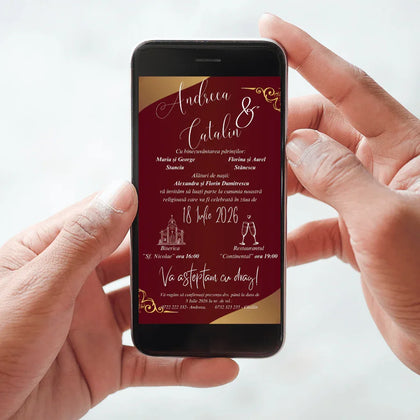 Andreea
&
Catalin
Cu binecuvântarea părinților:
Maria și George Florina și Aurel
Stanciu Stănescu
Alături de nașii:
Alexandra și Florin Dumitrescu
vă invităm să luați parte la cununia noastră
religioasă care va fi celebrată în ziua de
18 Iulie 2026
Biserica Restaurantul
"Sf. Nicolae" ora 16:00 "Continental" ora 19:00
Va asteptam cu drag!
Vă rugăm să confirmați prezența dvs. până la data de
5 Iulie 2026 la nr. de tel.:
0722 222 333- Andreea, 0732 323 233 - Cătălin